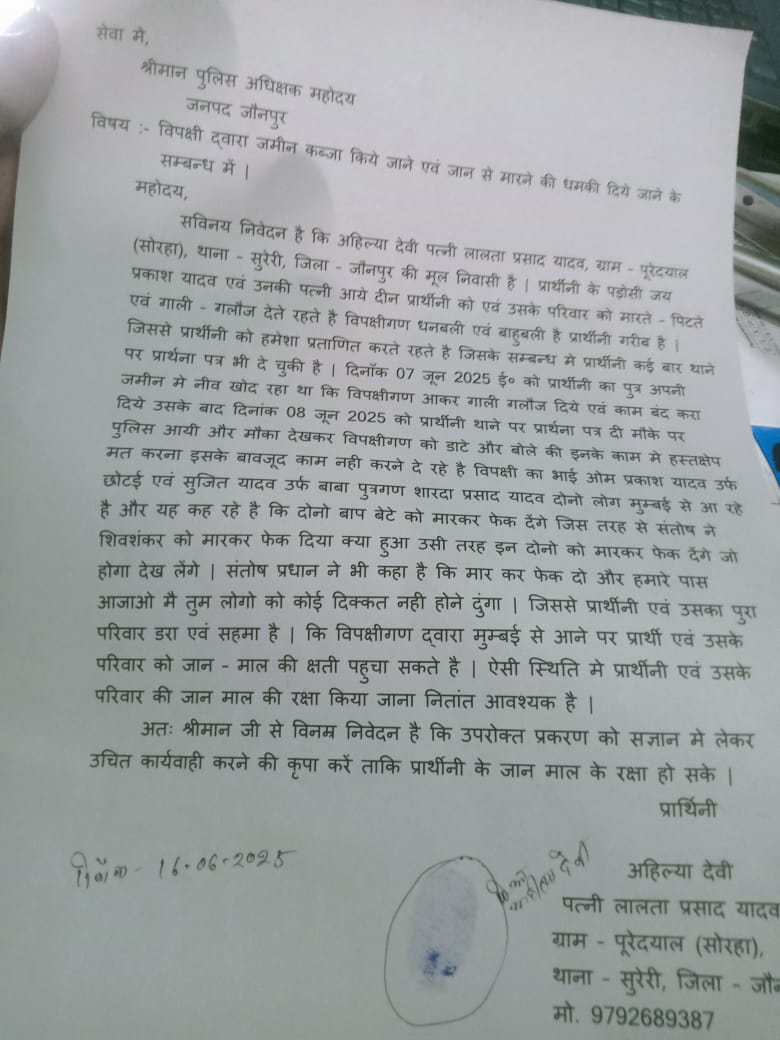 सेवा मे,
श्रीमान पुलिस अधिक्षक महोदय
जनपद जौनपुर
विषय :- विपक्षी द्वारा जमीन कब्जा किये जाने एवं जान से मारने की धमकी दिये जाने के
सम्बन्ध में |
महोदय,
सविनय निवेदन है कि अहिल्या देवी पत्नी लालता प्रसाद यादव, ग्राम - पूरेदयाल
(सोरहा), थाना - सुरेरी, जिला - जौनपुर की मूल निवासी है | प्रार्थीनी के पड़ोसी जय
प्रकाश यादव एवं उनकी पत्नी आये दीन प्रार्थीनी को एवं उसके परिवार को मारते - पिटते
एवं गाली - गलौज देते रहते है विपक्षीगण धनबली एवं बाहुबली है प्रार्थीनी गरीब है |
जिससे प्रार्थीनी को हमेशा प्रताणित करते रहते है जिसके सम्बन्ध मे प्रार्थीनी कई बार थाने
पर प्रार्थना पत्र भी दे चुकी है | दिनॉक 07 जून 2025 ई० को प्रार्थीनी का पुत्र अपनी
जमीन मे नीव खोद रहा था कि विपक्षीगण आकर गाली गलौज दिये एवं काम बंद करा
दिये उसके बाद दिनांक 08 जून 2025 को प्रार्थीनी थाने पर प्रार्थना पत्र दी मौके पर
पुलिस आयी और मौका देखकर विपक्षीगण को डाटे और बोले की इनके काम मे हस्तक्षेप
मत करना इसके बावजूद काम नही करने दे रहे है विपक्षी का भाई ओम प्रकाश यादव उर्फ
छोटई एवं सुजित यादव उर्फ बाबा पुत्रगण शारदा प्रसाद यादव दोनो लोग मुम्बई से आ रहे
है और यह कह रहे है कि दोनो बाप बेटे को मारकर फेक देंगे जिस तरह से संतोष ने
शिवशंकर को मारकर फेक दिया क्या हुआ उसी तरह इन दोनो को मारकर फेक देंगे जो
होगा देख लेंगे | संतोष प्रधान ने भी कहा है कि मार कर फेक दो और हमारे पास
आजाओ मै तुम लोगो को कोई दिक्कत नही होने दुंगा | जिससे प्रार्थीनी एवं उसका पुरा
परिवार डरा एवं सहमा है | कि विपक्षीगण द्वारा मुम्बई से आने पर प्रार्थी एवं उसके
परिवार को जान - माल की क्षती पहुचा सकते है | ऐसी स्थिति मे प्रार्थीनी एवं उसके
परिवार की जान माल की रक्षा किया जाना नितांत आवश्यक है |
अतः श्रीमान जी से विनम्र निवेदन है कि उपरोक्त प्रकरण को सज्ञान मे लेकर
उचित कार्यवाही करने की कृपा करें ताकि प्रार्थीनी के जान माल के रक्षा हो सके |
प्रार्थिनी
दिनॉक - 16-06-2025
देवी
अहिल्या देवी
पत्नी लालता प्रसाद यादव
ग्राम - पूरेदयाल (सोरहा),
थाना - सुरेरी, जिला -
मो. 9792689387